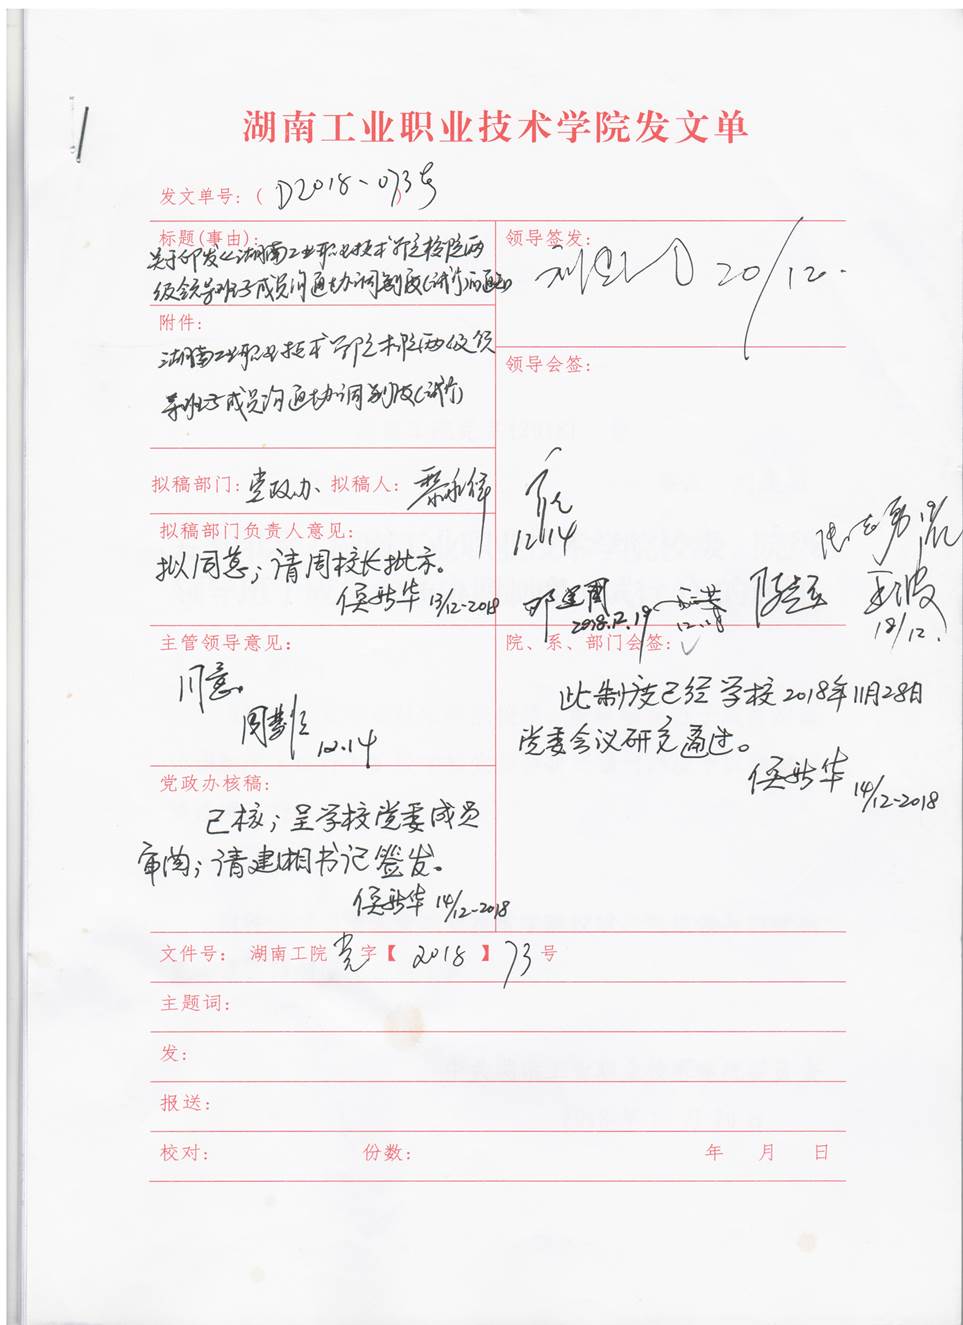 湖南工业职业技术学院发文单
发文单号：( D2018-073号 )
标题(事由)：
关于印发《湖南工业职业技术学院校院两
级领导班子成员沟通协调制度(试行)》的通知
附件：
湖南工业职业技术学院校院两级领
导班子成员沟通协调制度(试行)
拟稿部门：党政办 拟稿人：
拟稿部门负责人意见：
拟同意；请周校长批示。
侯新华 13/12-2018
主管领导意见：
同意。
12.14
党政办核稿：
已核；呈学校党委成员
审阅；请建湘书记签发。
侯新华 14/12-2018
领导签发：
20/12.
领导会签：
12.14
2018.12.19
18/12.
院、系、部门会签：
此制度已经学校2018年11月28日
党委会议研究通过。
侯新华 14/12-2018
文件号： 湖南工院党字【2018】73号
主题词：
发：
报送：
校对： 份数： 年 月 日